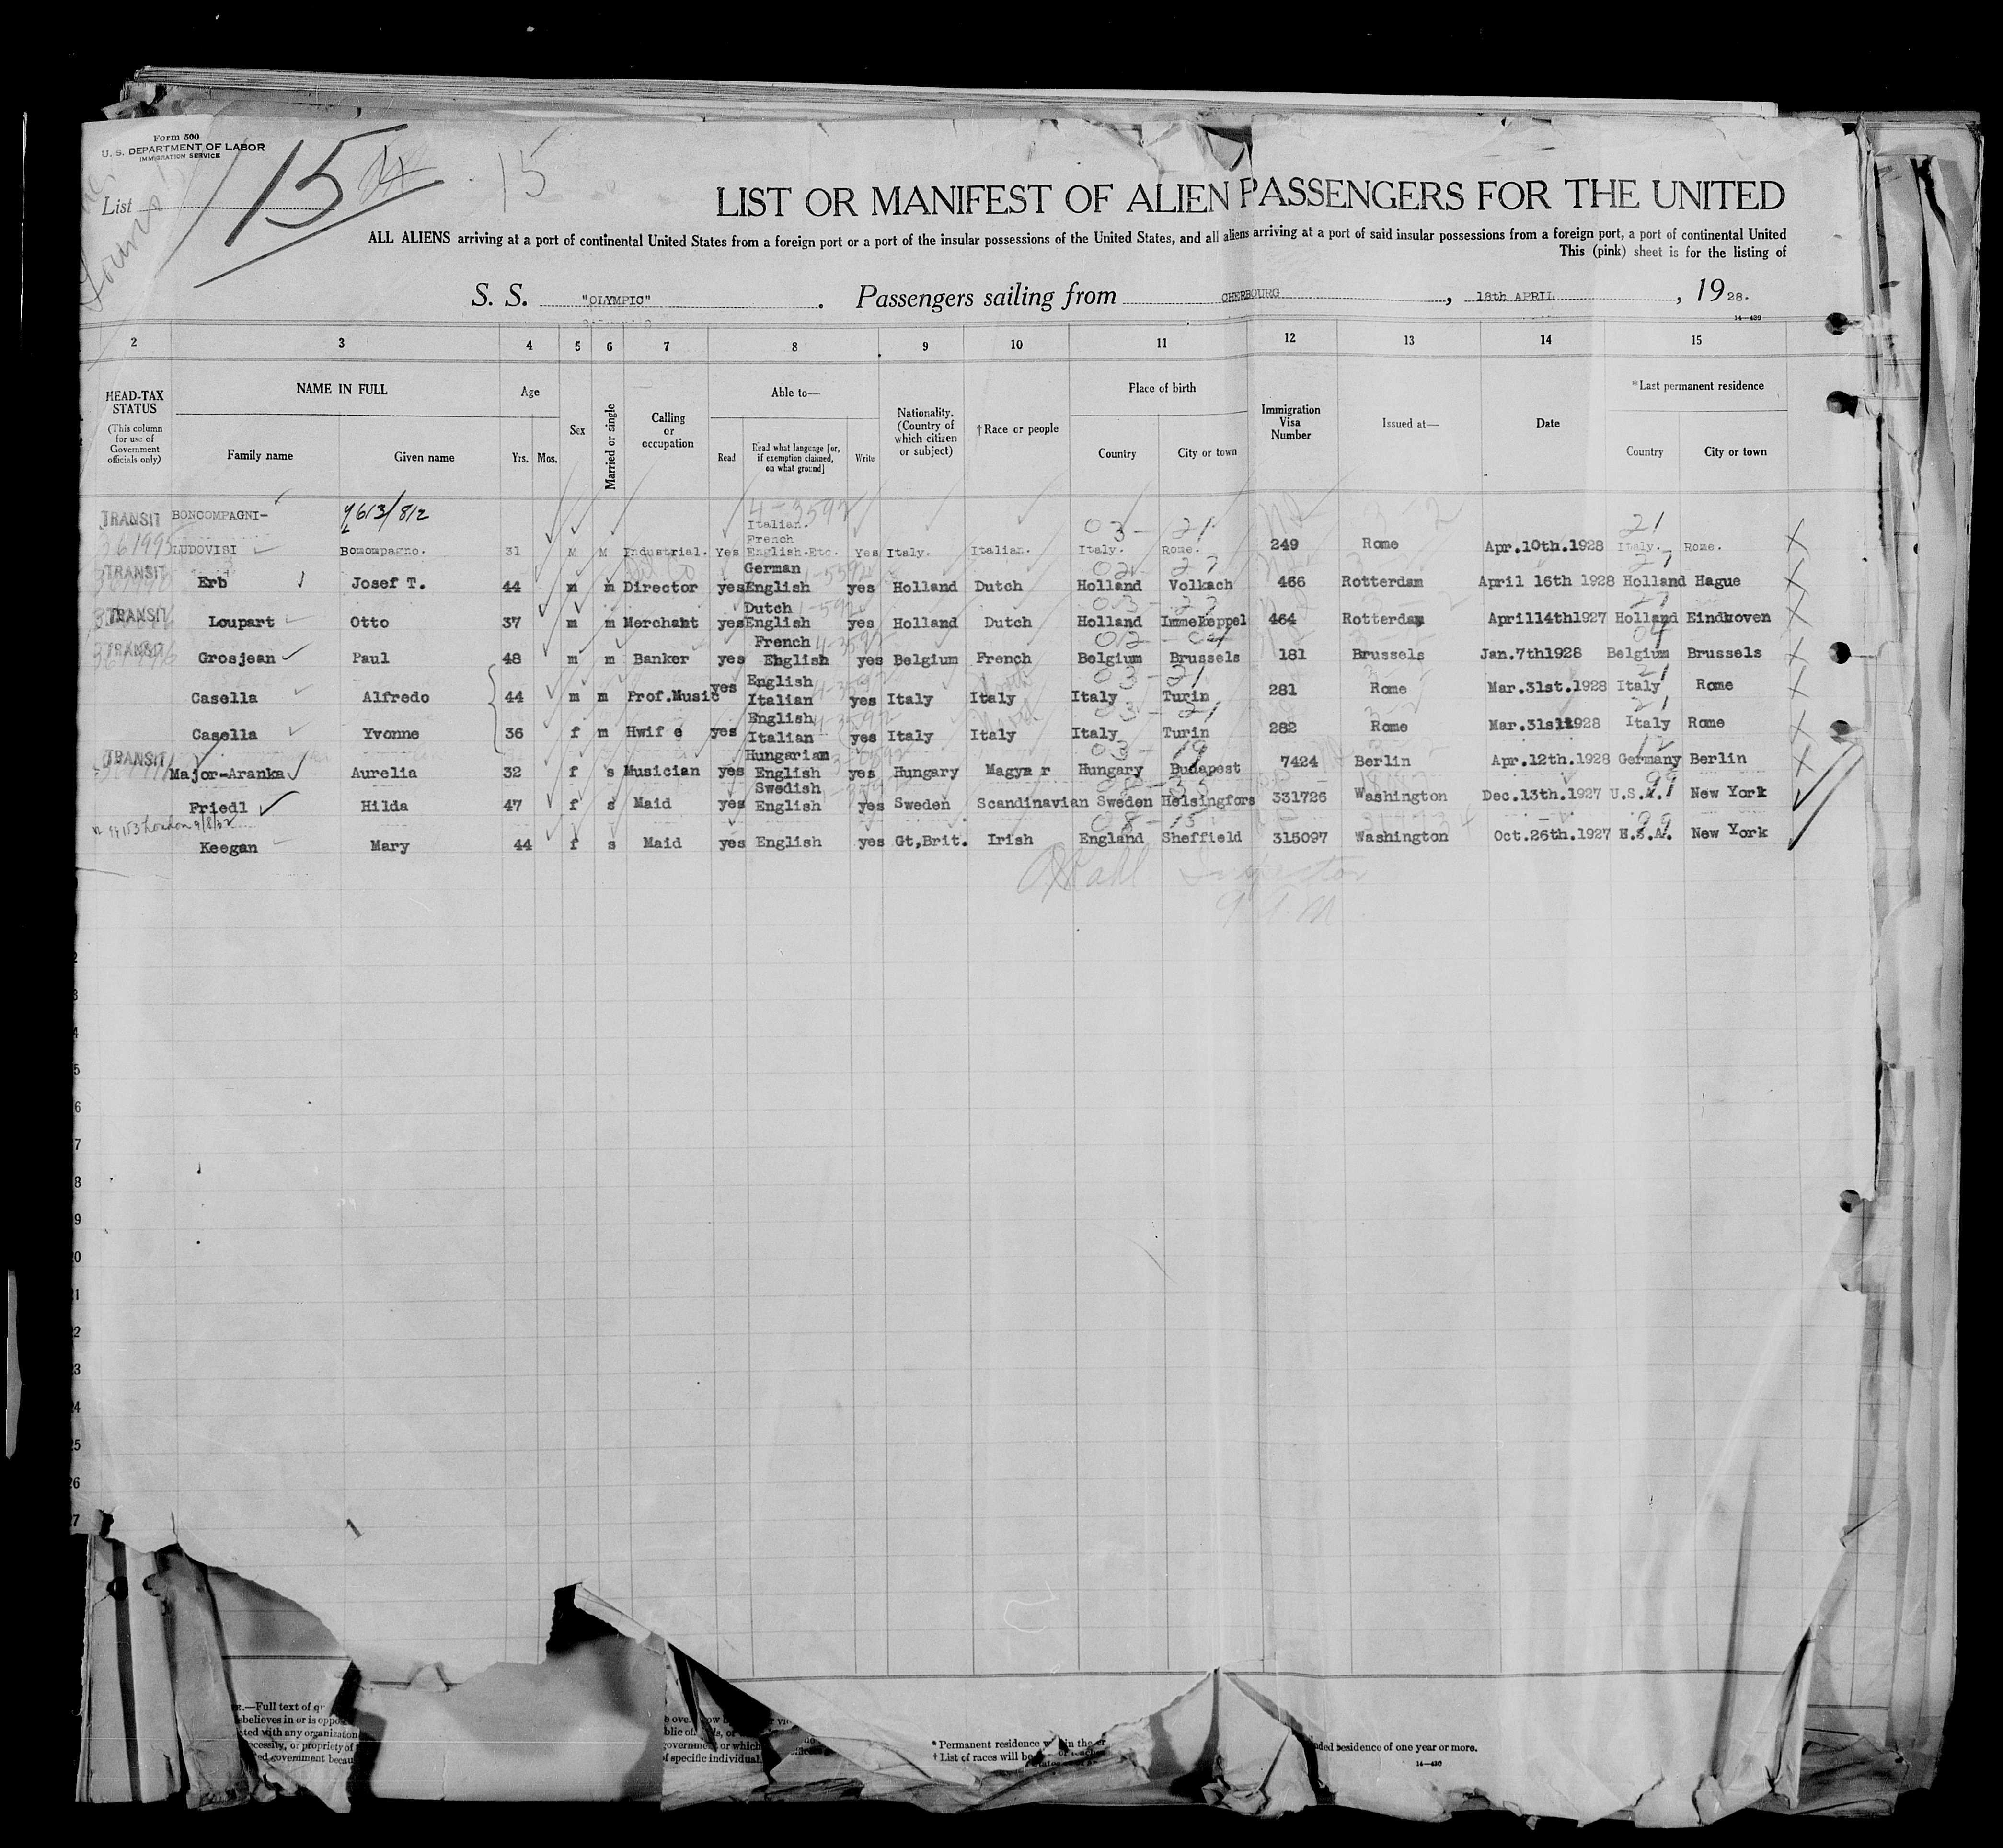 Form 500
U. S. DEPARTMENT OF LABOR
IMMIGRATION SERVICE
List 15
15
LIST OR MANIFEST OF ALIEN PASSENGERS FOR THE UNITED
ALL ALIENS arriving at a port of continental United States from a foreign port or a port of the insular possessions of the United States, and all aliens arriving at a port of said insular possessions from a foreign port, a port of continental United
This (pink) sheet is for the listing of
S. S. "OLYMPIC". Passengers sailing from CHERBOURG, 18th APRIL, 1928.
14-430
2 3 4 5 6 7 8 9 10 11 12 13 14 15
HEAD-TAX STATUS (This column for use of Government officials only) NAME IN FULL Family name Given name Age Yrs. Mos. Sex Married or single Calling or occupation Able to— Read Read what language [or, if exemption claimed, on what ground] Write Nationality. (Country of which citizen or subject) †Race or people Place of birth Country City or town Immigration Visa Number Issued at— Date *Last permanent residence Country City or town
TRANSIT BONCOMPAGNI- 9613/812 4-3592 Italian. 03- 21 21
French
LUDOVISI Bomompagno. 31 M M Industrial. Yes English.Etc. Yes Italy. Italian. Italy. Rome. 249 Rome Apr.10th.1928 Italy. Rome.
TRANSIT German
Erb Josef T. 44 m m Director yes English yes Holland Dutch Holland Volkach 466 Rotterdam April 16th 1928 Holland Hague
TRANSIT Dutch
Loupart Otto 37 m m Merchant yes English yes Holland Dutch Holland Immekeppel 464 Rotterdam April14th1927 Holland Eindhoven
TRANSIT French
Grosjean Paul 48 m m Banker yes English yes Belgium French Belgium Brussels 181 Brussels Jan.7th1928 Belgium Brussels
English
Casella Alfredo 44 m m Prof.Music yes Italian yes Italy Italy Italy Turin 281 Rome Mar.31st.1928 Italy Rome
English
Casella Yvonne 36 f m Hwife yes Italian yes Italy Italy Italy Turin 282 Rome Mar.31st1928 Italy Rome
TRANSIT Hungarian
Major-Aranka Aurelia 32 f s Musician yes English yes Hungary Magyar Hungary Budapest 7424 Berlin Apr.12th.1928 Germany Berlin
Swedish
Friedl Hilda 47 f s Maid yes English yes Sweden Scandinavian Sweden Helsingfors 331726 Washington Dec.13th.1927 U.S.A. New York
London 9/8/32
Keegan Mary 44 f s Maid yes English yes Gt,Brit. Irish England Sheffield 315097 Washington Oct.26th.1927 U.S.A. New York
Inspector
2
3
4
5
6
7
8
9
20
21
22
23
24
25
26
27
.—Full text of
believes in or is oppo
ted with any organization
ecessity, or propriety of
government becau
government or which
of specific individual
* Permanent residence
† List of races will be
residence of one year or more.
14-430